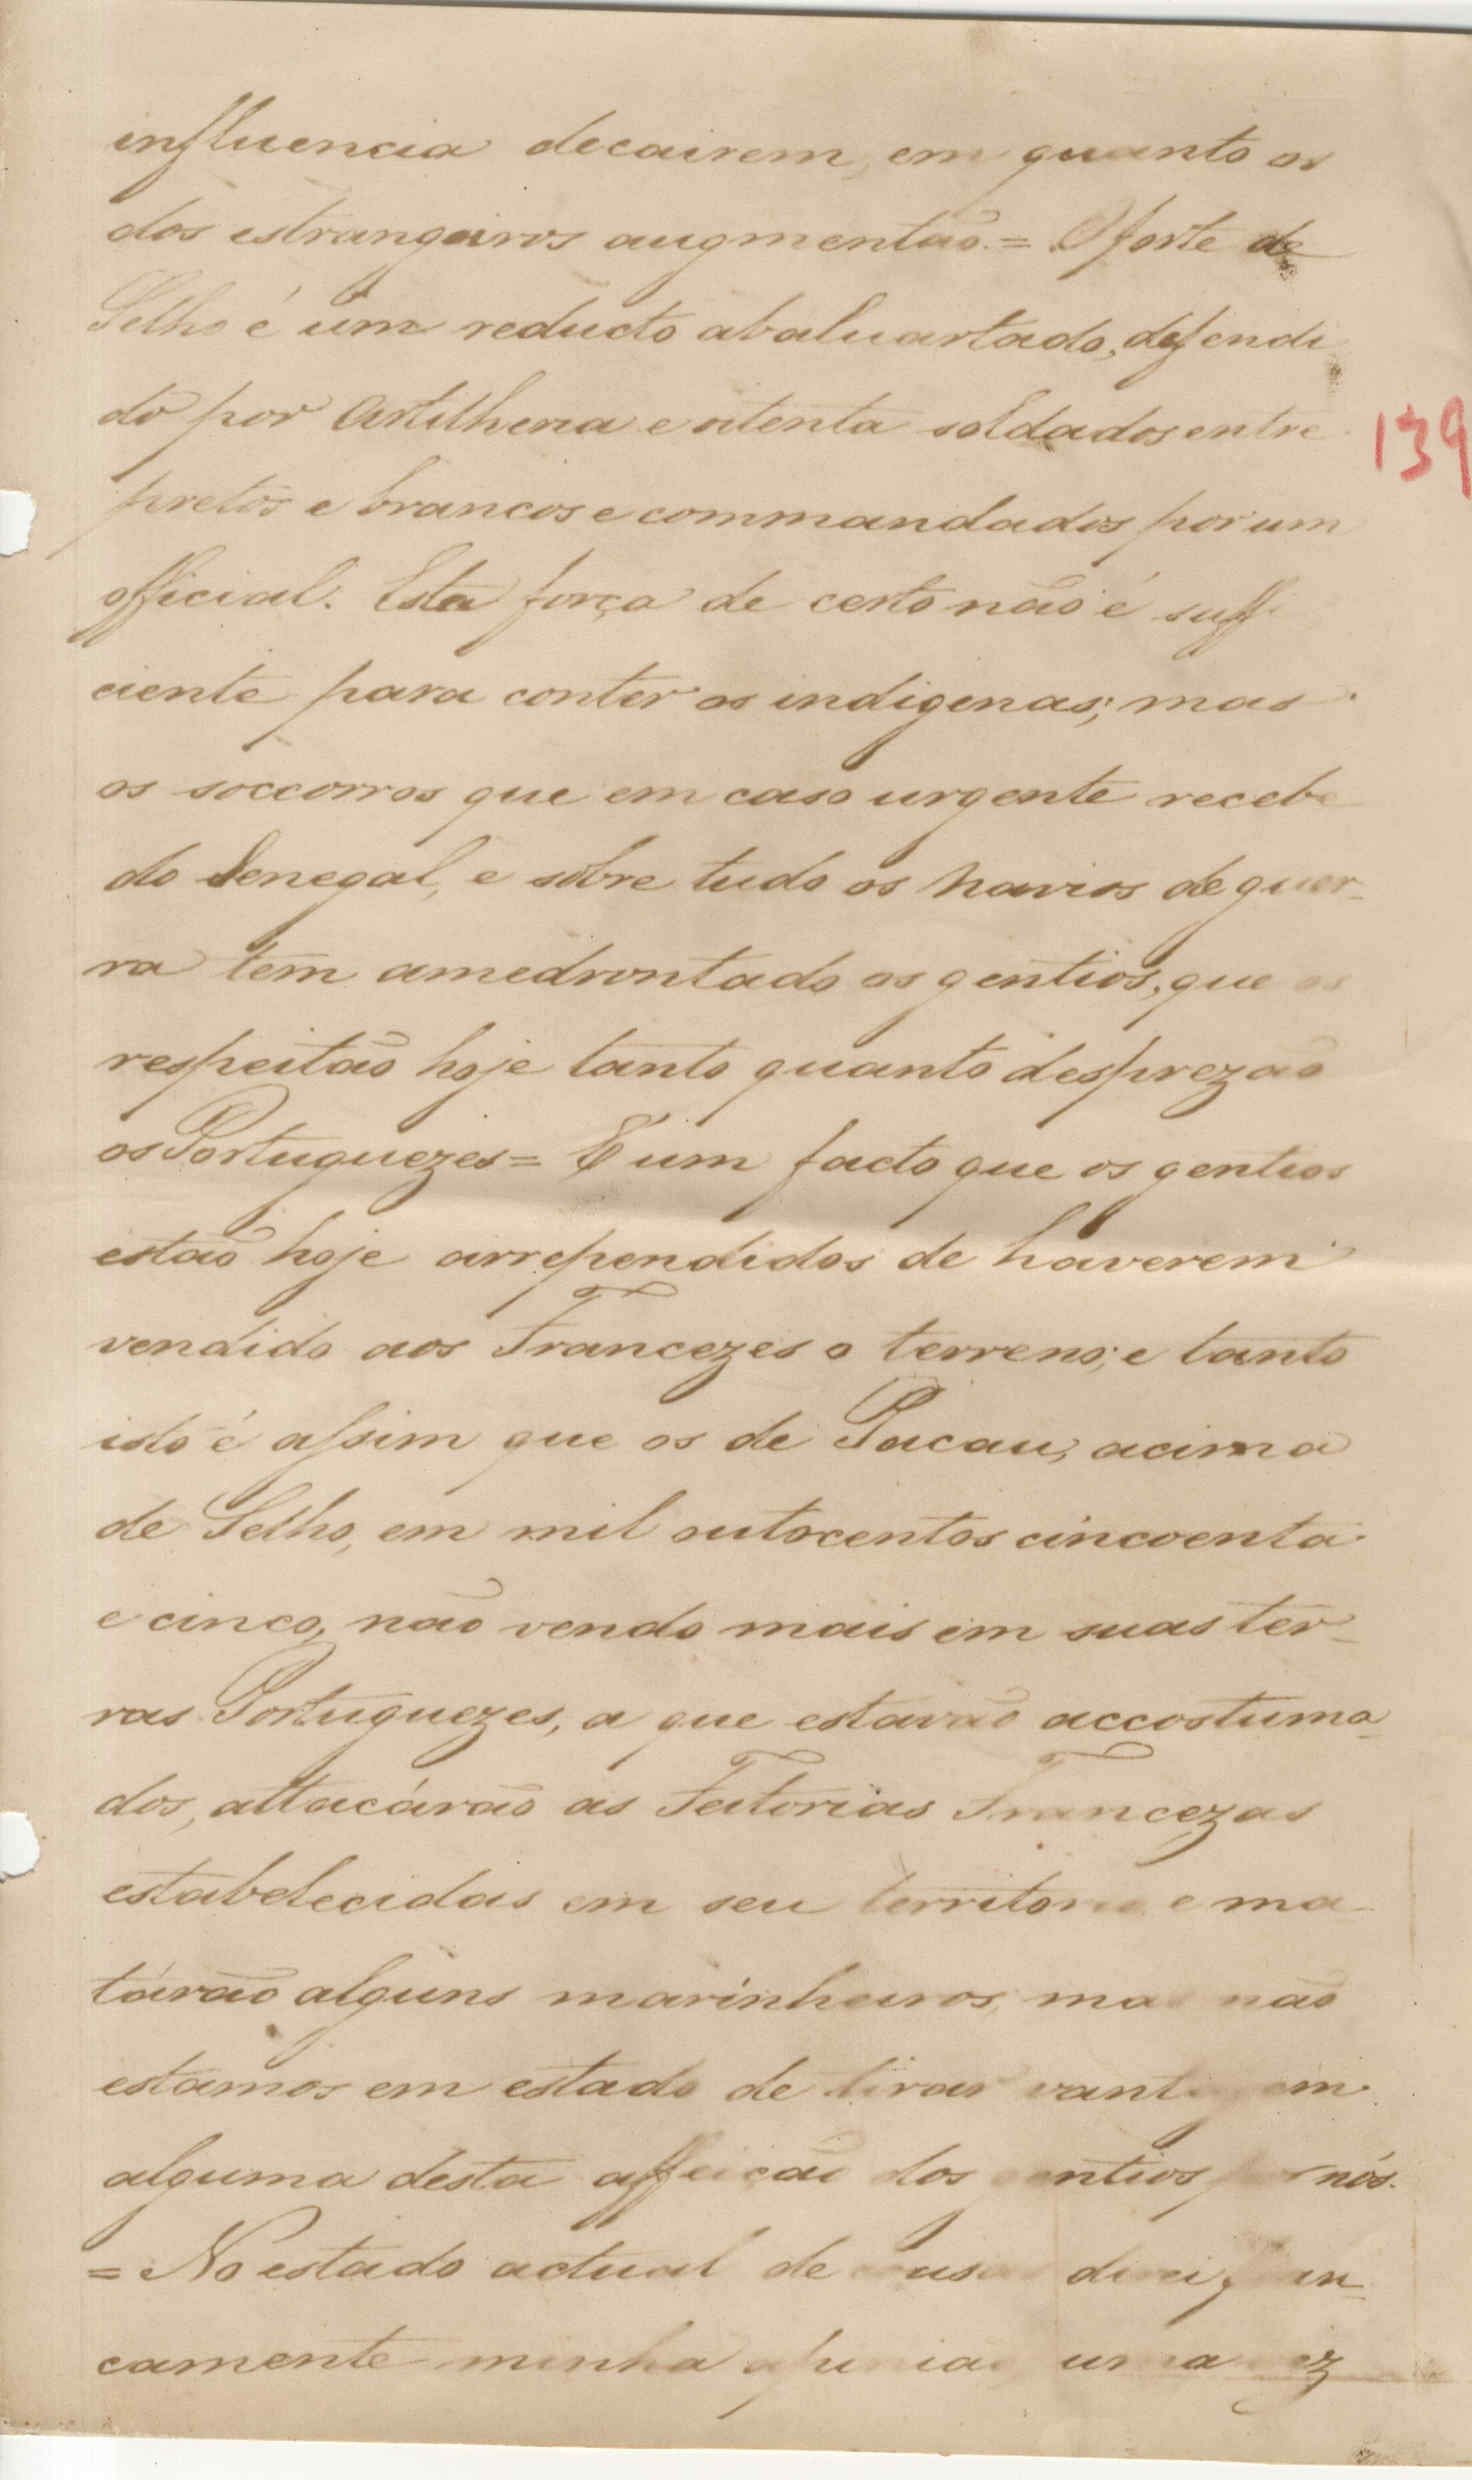 influencia decairem, em quanto os
dos estrangeiros augmentão. = O forte de
Selho é um reducto abaluartado, defendi
do por Artilheria e oitenta soldados entre
139
pretos e brancos e commandados por um
official. Esta força de certo não é suffi
ciente para conter os indigenas; mas
os soccorros que em caso urgente recebe
do Senegal, e sobre tudo os navios de guer-
ra tem amedrontado os gentios, que os
respeitão hoje tanto quanto desprezão
os Portuguezes = É um facto que os gentios
estão hoje arrependidos de haverem
vendido aos Francezes o terreno; e tanto
isto é assim que os de Pacau, acima
de Selho, em mil outocentos cincoenta
e cinco, não vendo mais em suas ter-
ras Portuguezes, a que estavão accostuma-
dos, attacárão as Feitorias Francezas
estabelecidas em seu territorio e ma-
tárão alguns marinheiros, mas não
estamos em estado de tirar vantagem
alguma desta affeição dos gentios por nós.
= No estado actual de cousas direi fran-
camente minha opinião, uma vez